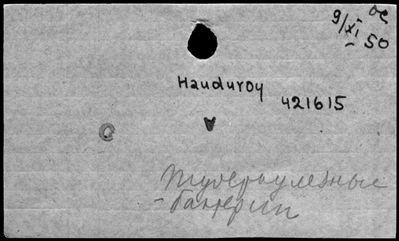 9/XI 50
Hauduroy
421615
Туберкулезные
- бактерии